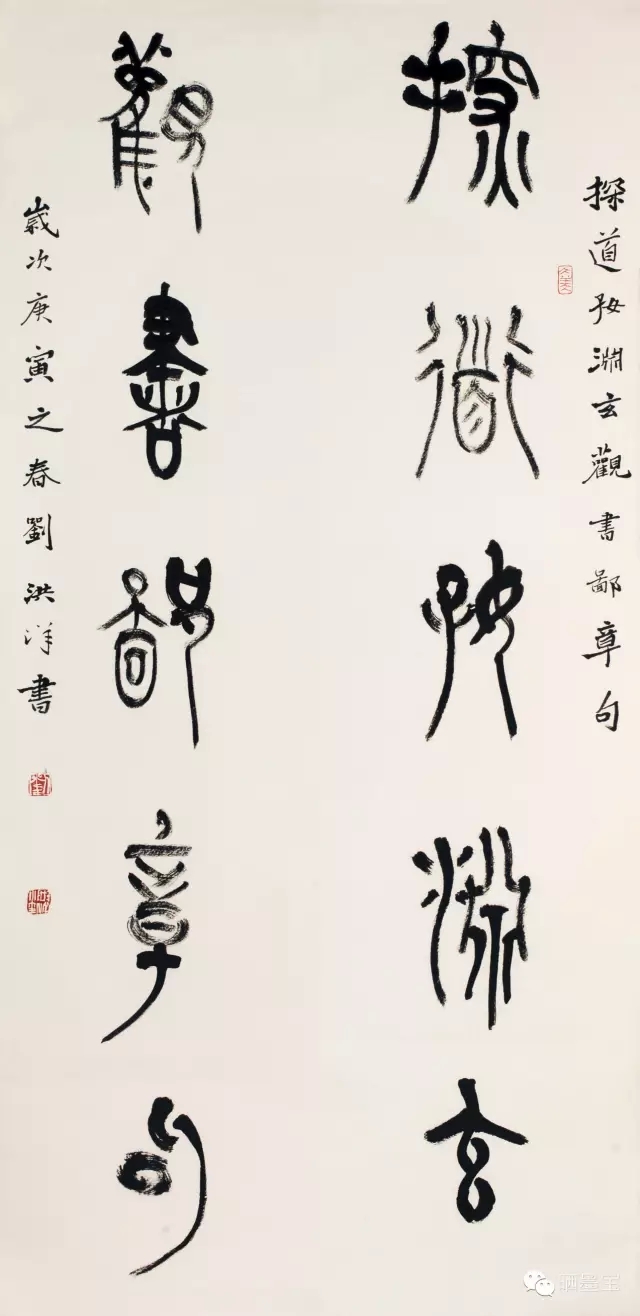 探道好淵玄觀書鄙章句
探道好淵玄
觀書鄙章句
歲次庚寅之春劉洪洋書
晒墨宝